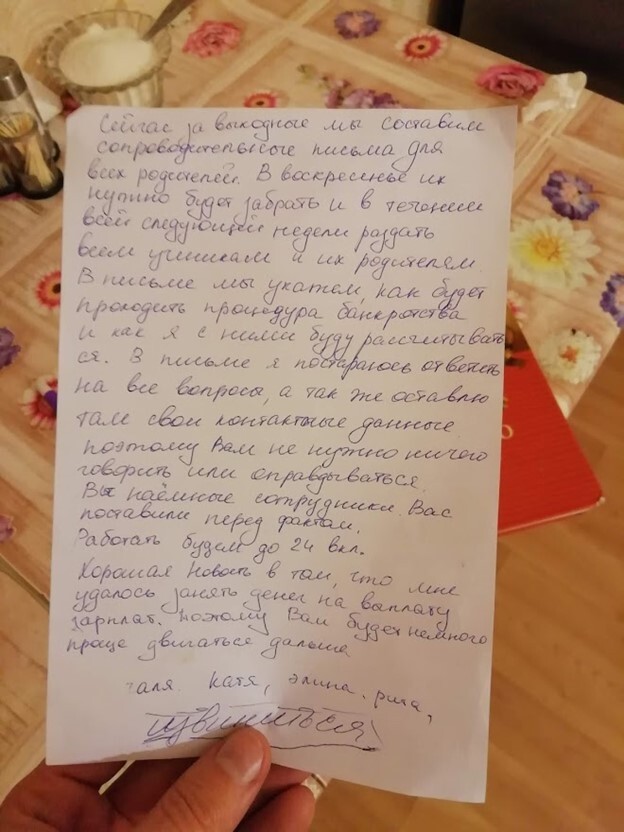 Сейчас за выходные мы составим
сопроводительные письма для
всех родителей. В воскресенье их
нужно будет забрать и в течении
всей следующей недели раздать
всем ученикам и их родителям.
В письме мы укажем, как будет
проходить процедура банкротства
и как я с ними буду рассчитывать
ся. В письме я постараюсь ответить
на все вопросы, а так же оставлю
там свои контактные данные,
поэтому Вам не нужно ничего
говорить или оправдываться.
Вы наёмные сотрудники. Вас
поставили перед фактом.
Работать будем до 24 вкл.
Хорошая новость в том, что мне
удалось занять денег на выплату
зарплат. Поэтому Вам будет немного
проще двигаться дальше
аля. Катя, Элина, Рита,
извиниться